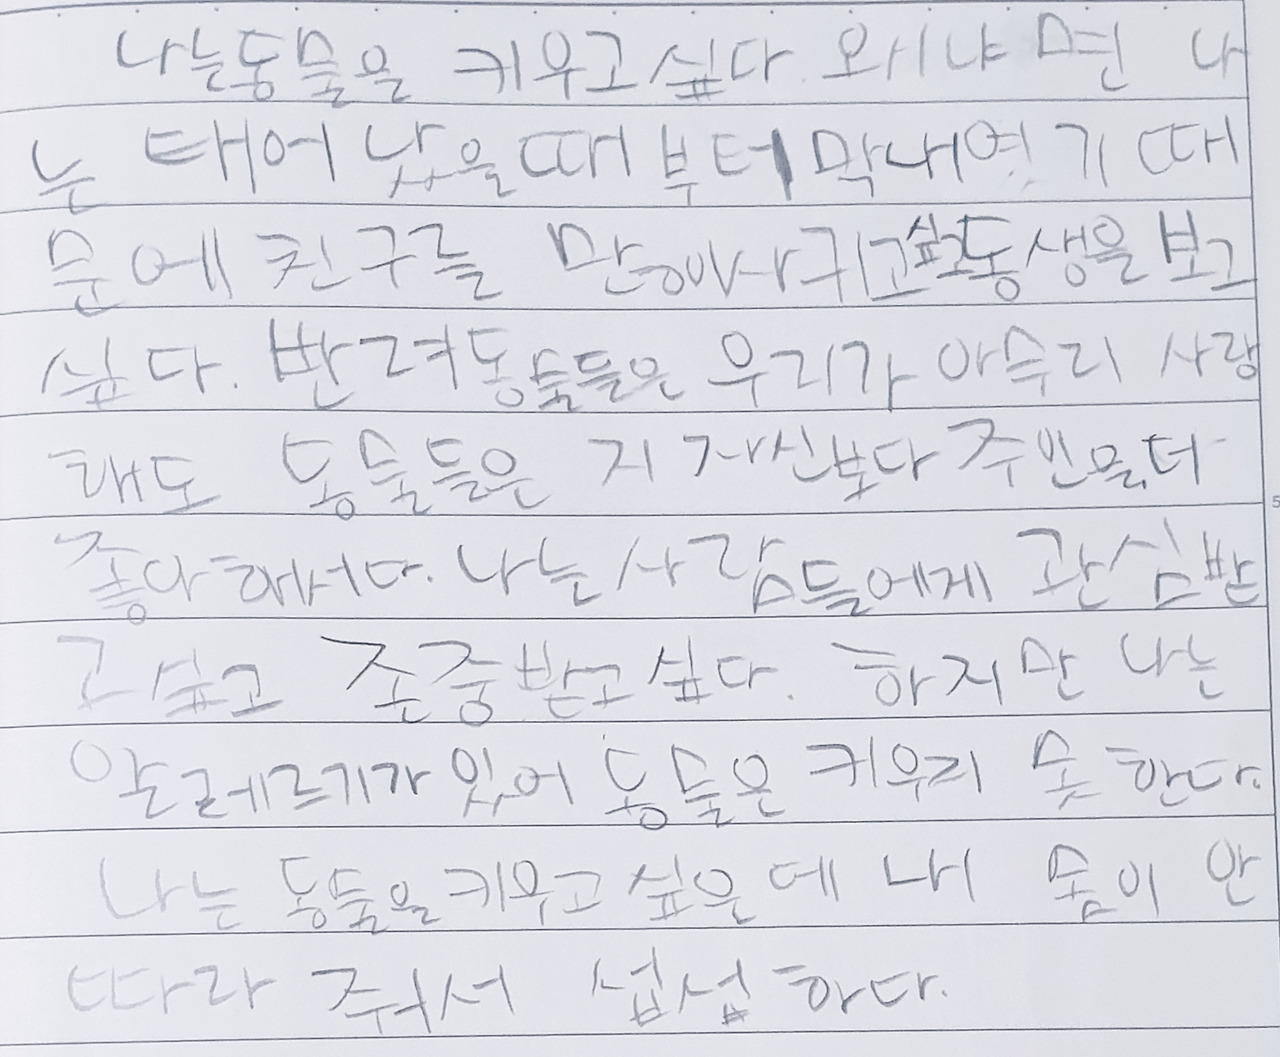 나는동물을 키우고싶다. 왜냐면 나
는 태어 났을때부터막내였기때
문에 친구를 만이사귀고싶고동생을보고
싶다. 반려동물들은 우리가 아무리 사랑
해도 동물들은 지 자신보다 주인을더
좋아해서다. 나는 사람들에게 관심받
고싶고 존중받고싶다. 하지만 나는
알레르기가 있어 동물은 키우지 못 한다.
나는 동물을키우고 싶은데 내 몸이 안
따라 줘서 섭섭하다.
5